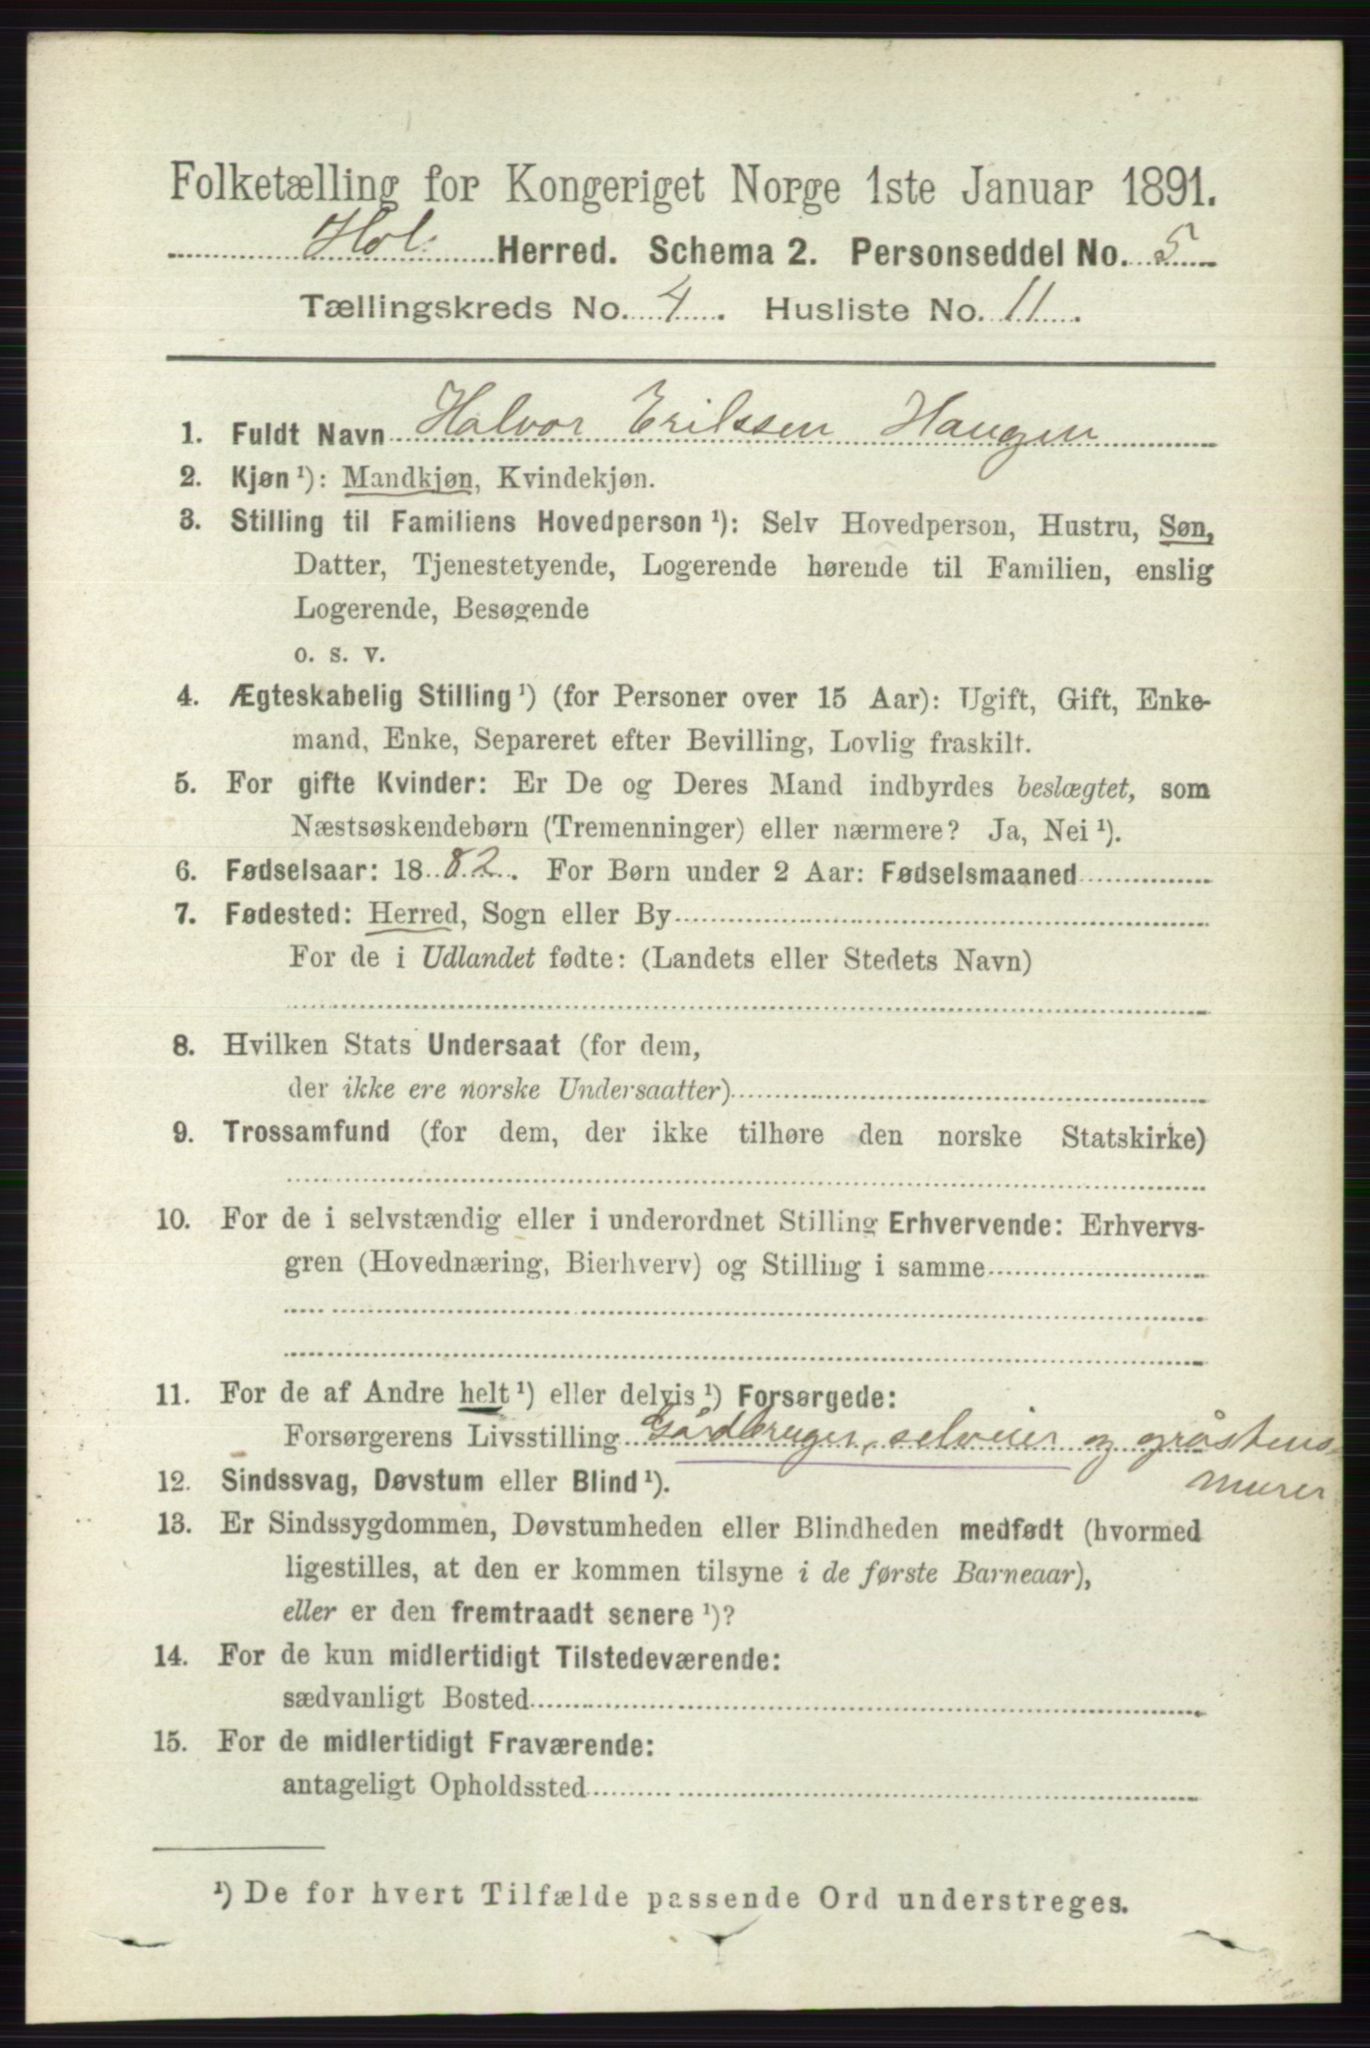 Folketælling for Kongeriget Norge 1ste Januar 1891.
Hol Herred. Schema 2. Personseddel No. 5
Tællingskreds No. 4. Husliste No. 11.
1. Fuldt Navn Halvor Erikssen Haugen
2. Kjøn ¹): Mandkjøn, Kvindekjøn.
3. Stilling til Familiens Hovedperson ¹): Selv Hovedperson, Hustru, Søn,
Datter, Tjenestetyende, Logerende hørende til Familien, enslig
Logerende, Besøgende
o. s. v.
4. Ægteskabelig Stilling ¹) (for Personer over 15 Aar): Ugift, Gift, Enke-
mand, Enke, Separeret efter Bevilling, Lovlig fraskilt.
5. For gifte Kvinder: Er De og Deres Mand indbyrdes beslægtet, som
Næstsøskendebørn (Tremenninger) eller nærmere? Ja, Nei ¹).
6. Fødselsaar: 1882. For Børn under 2 Aar: Fødselsmaaned
7. Fødested: Herred, Sogn eller By
For de i Udlandet fødte: (Landets eller Stedets Navn)
8. Hvilken Stats Undersaat (for dem,
der ikke ere norske Undersaatter)
9. Trossamfund (for dem, der ikke tilhøre den norske Statskirke)
10. For de i selvstændig eller i underordnet Stilling Erhvervende: Erhvervs-
gren (Hovednæring, Bierhverv) og Stilling i samme
11. For de af Andre helt ¹) eller delvis ¹) Forsørgede:
Forsørgerens Livsstilling Gårdbruger, selveier og gråstens-
murer
12. Sindssvag, Døvstum eller Blind ¹).
13. Er Sindssygdommen, Døvstumheden eller Blindheden medfødt (hvormed
ligestilles, at den er kommen tilsyne i de første Barneaar),
eller er den fremtraadt senere ¹)?
14. For de kun midlertidigt Tilstedeværende:
sædvanligt Bosted
15. For de midlertidigt Fraværende:
antageligt Opholdssted
¹) De for hvert Tilfælde passende Ord understreges.